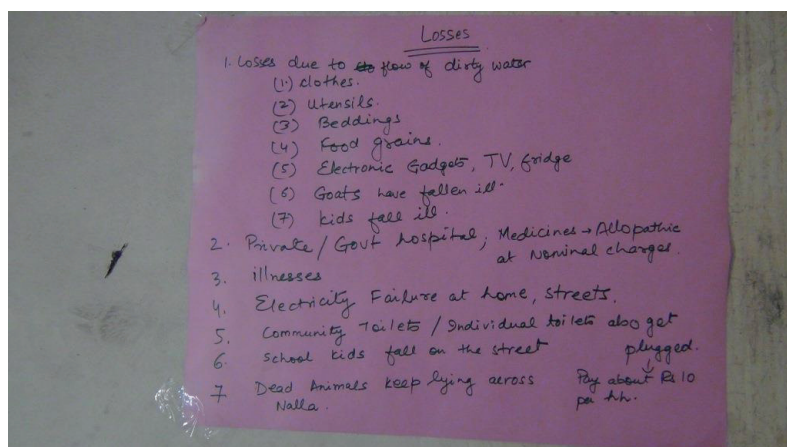 Losses
1. Losses due to flow of dirty water
(1.) clothes.
(2) Utensils.
(3) Beddings
(4) Food grains.
(5) Electronic Gadgets, TV, fridge
(6) Goats have fallen ill.
(7) kids fall ill.
2. Private / Govt hospital, Medicines → Allopathic
at Nominal charges.
3. illnesses
4. Electricity Failure at home, streets.
5. Community Toilets / Individual toilets also get
plugged.
6. School kids fall on the street
7 Dead Animals keep lying across
Nalla.
Pay about Rs 10
per hh.